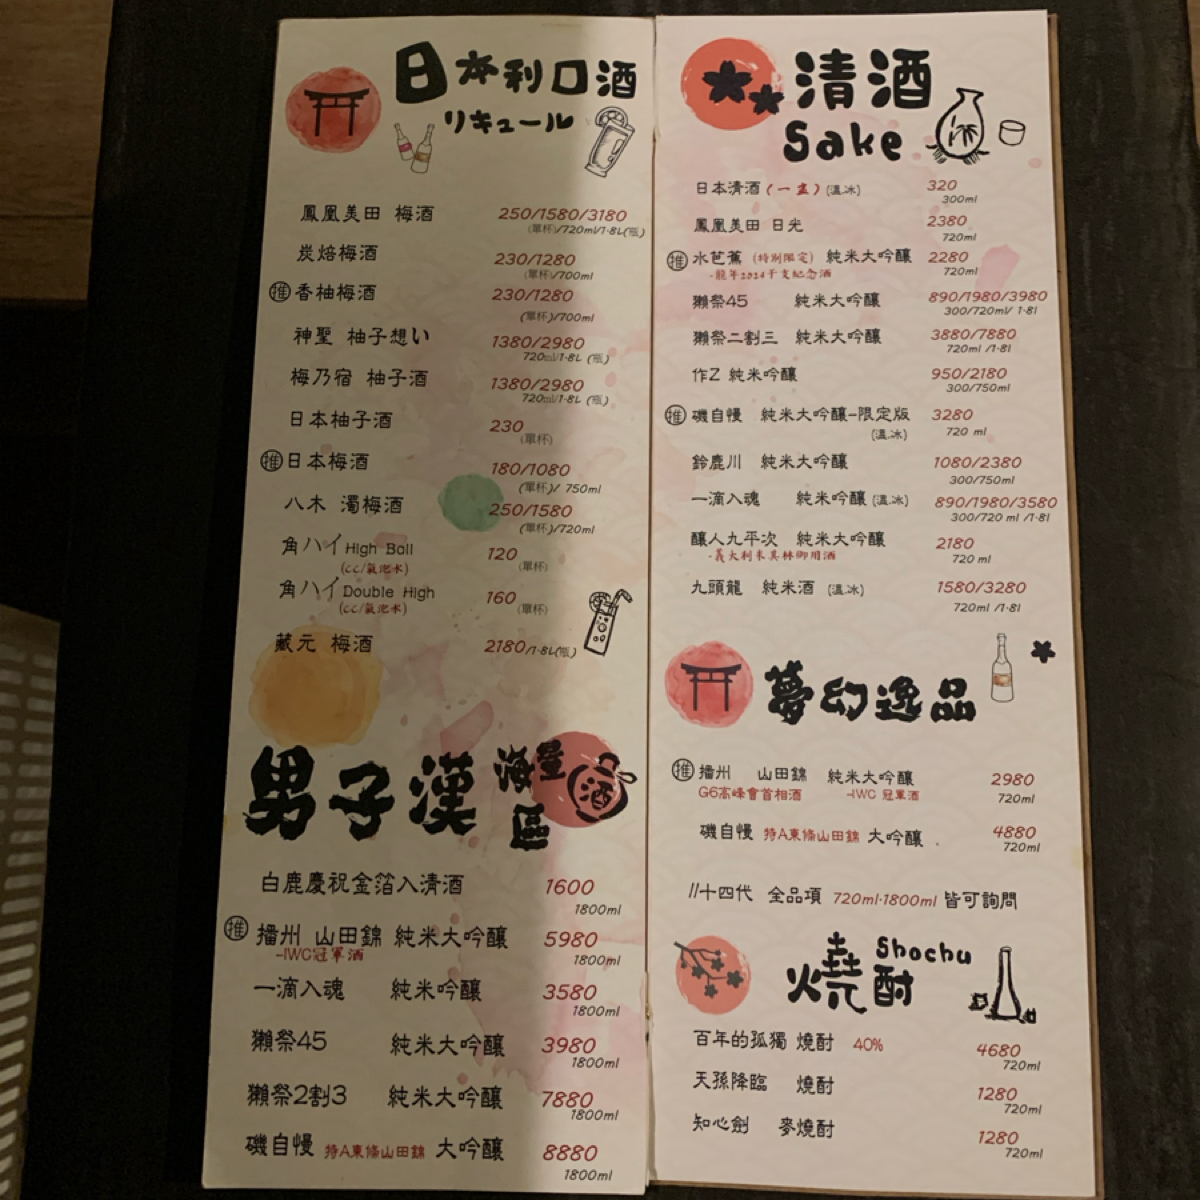 日本利口酒
リキュール
鳳凰美田 梅酒 250/1580/3180
(單杯)/720ml/1.8L(瓶)
炭焙梅酒 230/1280
(單杯)/700ml
推 香柚梅酒 230/1280
(單杯)/700ml
神聖 柚子想い 1380/2980
720ml/1.8L (瓶)
梅乃宿 柚子酒 1380/2980
720ml/1.8L (瓶)
日本柚子酒 230
(單杯)
推 日本梅酒 180/1080
(單杯)/ 750ml
八木 濁梅酒 250/1580
(單杯)/720ml
角ハイ High Ball 120
(cc/氣泡水) (單杯)
角ハイ Double High 160
(cc/氣泡水) (單杯)
蔵元 梅酒 2180/1.8L(瓶)
男子漢 海量區 酒
白鹿慶祝金箔入清酒 1600
1800ml
推 播州 山田錦 純米大吟釀 5980
-IWC冠軍酒 1800ml
一滴入魂 純米吟釀 3580
1800ml
獺祭45 純米大吟釀 3980
1800ml
獺祭2割3 純米大吟釀 7880
1800ml
磯自慢 特A東條山田錦 大吟釀 8880
1800ml
清酒
Sake
日本清酒(一盅)(溫.冰) 320
300ml
鳳凰美田 日光 2380
720ml
推 水芭蕉 (特別限定) 純米大吟釀 2280
-龍年2024干支紀念酒 720ml
獺祭45 純米大吟釀 890/1980/3980
300/720ml/ 1.8l
獺祭二割三 純米大吟釀 3880/7880
720ml /1.8l
作Z 純米吟釀 950/2180
300/750ml
推 磯自慢 純米大吟釀-限定版 3280
(溫.冰) 720 ml
鈴鹿川 純米大吟釀 1080/2380
300/750ml
一滴入魂 純米吟釀 (溫.冰) 890/1980/3580
300/720 ml /1.8l
釀人九平次 純米大吟釀 2180
-義大利米其林御用酒 720 ml
九頭龍 純米酒 (溫.冰) 1580/3280
720ml /1.8l
夢幻逸品
推 播州 山田錦 純米大吟釀 2980
G6高峰會首相酒 -IWC 冠軍酒 720ml
磯自慢 特A東條山田錦 大吟釀 4880
720ml
//十四代 全品項 720ml.1800ml 皆可詢問
燒酎 Shochu
百年的孤獨 燒酎 40% 4680
720ml
天孫降臨 燒酎 1280
720ml
知心劍 麥燒酎 1280
720ml